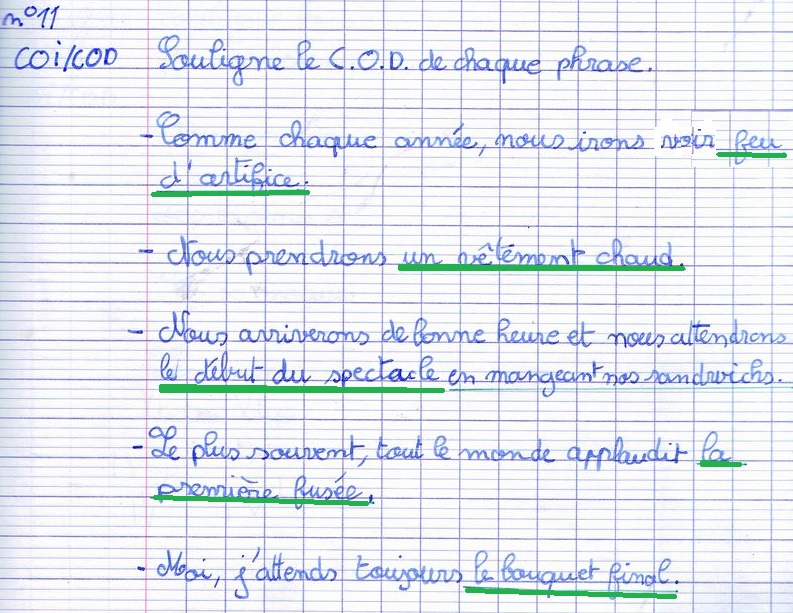 n°11
COI/COD Souligne le C.O.D. de chaque phrase.
- Comme chaque année, nous irons voir feu
d'artifice.
- Nous prendrons un vêtement chaud.
- Nous arriverons de bonne heure et nous attendrons
le début du spectacle en mangeant nos sandwichs.
- Le plus souvent, tout le monde applaudit la
première fusée.
- Moi, j'attends toujours le bouquet final.